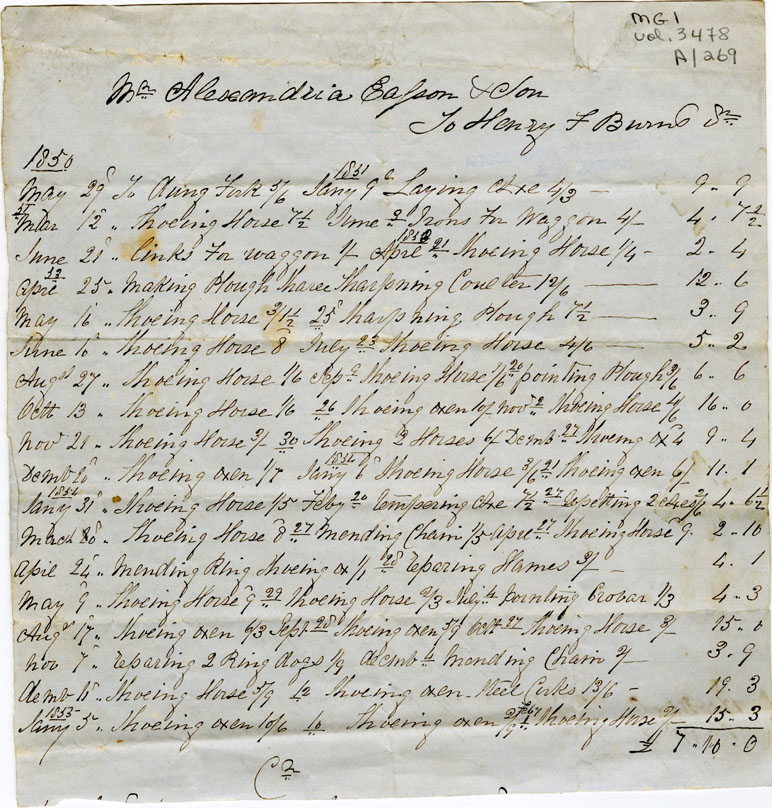 MG1
vol. 3478
A/269
Mr Alexandria Easson & Son
To Henry F Burns Dr
1850 1851
May 29 To Dung Fork 5/6 Jany 9 Laying Axe 4/3 — 9 .. 9
Mar 12 .. Shoeing Horse 7½ June 2 Irons For Waggon 4/ 4 .. 7½
June 21 .. links For waggon 1/ April 21 Shoeing Horse 1/4 - 2 .. 4
April 25 .. Making Plough Share Sharpning Coulter 12/6 — 12 .. 6
May 16 .. Shoeing Horse 3/1½ 25 Sharpning Plough 7½ — 3 .. 9
June 16 .. Shoeing Horse 8 July 23 Shoeing Horse 4/6 — 5 .. 2
Augst 27 .. Shoeing Horse 1/6 Sept 2 Shoeing Horse 1/6 20 pointing Plough 3/6 6 .. 6
Octt 13 .. Shoeing Horse 1/6 26 Shoeing oxen 10/ Novr 2 Shoeing Horse 4/6 16 .. 0
Novr 20 .. Shoeing Horse 3/ 30 Shoeing 2 Horses 6/ Decmb 27 Shoeing ox 4 9 .. 4
1854
Decmb 20 .. Shoeing oxen 1/7 Jany 6 Shoeing Horse 3/6 21 Shoeing oxen 6/ 11 .. 1
1854
Jany 31 .. Shoeing Horse 1/5 Feby 20 Tempering Axe 7½ 27 2 Axes 2/6 4 .. 6½
March 8 .. Shoeing Horse 8 27 Mending Chain 1/5 April 27 Shoeing Horse 9 2 .. 10
April 24 .. Mending Ring Shoeing ox 1/1 28 Reparing Hames 3/ — 4 .. 1
May 9 .. Shoeing Horse 9 29 Shoeing Horse 2/3 July 4 Pointing Crobar 1/3 4 .. 3
Augst 17 .. Shoeing oxen 6/3 Sept 28 Shoeing oxen 5/9 Octt 27 Shoeing Horse 3/ 15 .. 0
Nov 7 .. Reparing 2 Ring dogs 1/9 decmb 4 Mending Chain 2/ 3 .. 9
decmb 11 .. Shoeing Horse 5/9 12 Shoeing oxen Steel Corkes 13/6 - 19 .. 3
1855
Jany 5 .. Shoeing oxen 10/6 10 Shoeing oxen 2/9 Shoeing Horse 2/ 15 .. 3
£ 7 .. 10 .. 0
Cr